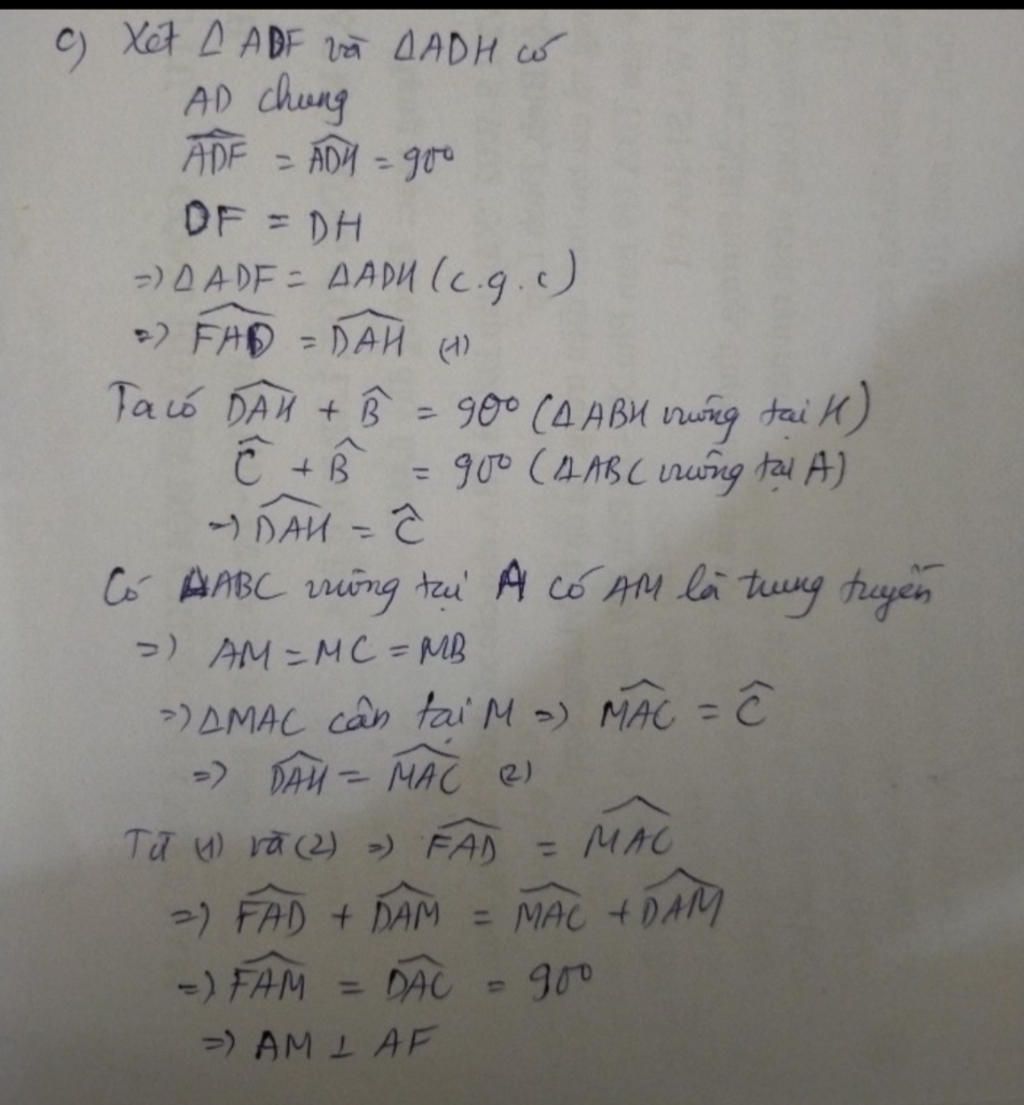 c) Xét △ ADF và △ADH có
AD chung
$\widehat{ADF}$ = $\widehat{ADH}$ = 90°
DF = DH
=> △ADF = △ADH (c.g.c)
=> $\widehat{FAD}$ = $\widehat{DAH}$ (1)
Ta có $\widehat{DAH}$ + $\widehat{B}$ = 90° (△ABH vuông tại H)
$\widehat{C}$ + $\widehat{B}$ = 90° (△ABC vuông tại A)
=> $\widehat{DAH}$ = $\widehat{C}$
Có △ABC vuông tại A có AM là trung tuyến
=> AM = MC = MB
=> △MAC cân tại M => $\widehat{MAC}$ = $\widehat{C}$
=> $\widehat{DAH}$ = $\widehat{MAC}$ (2)
Từ (1) và (2) => $\widehat{FAD}$ = $\widehat{MAC}$
=> $\widehat{FAD}$ + $\widehat{DAM}$ = $\widehat{MAC}$ + $\widehat{DAM}$
=> $\widehat{FAM}$ = $\widehat{DAC}$ = 90°
=> AM ⊥ AF